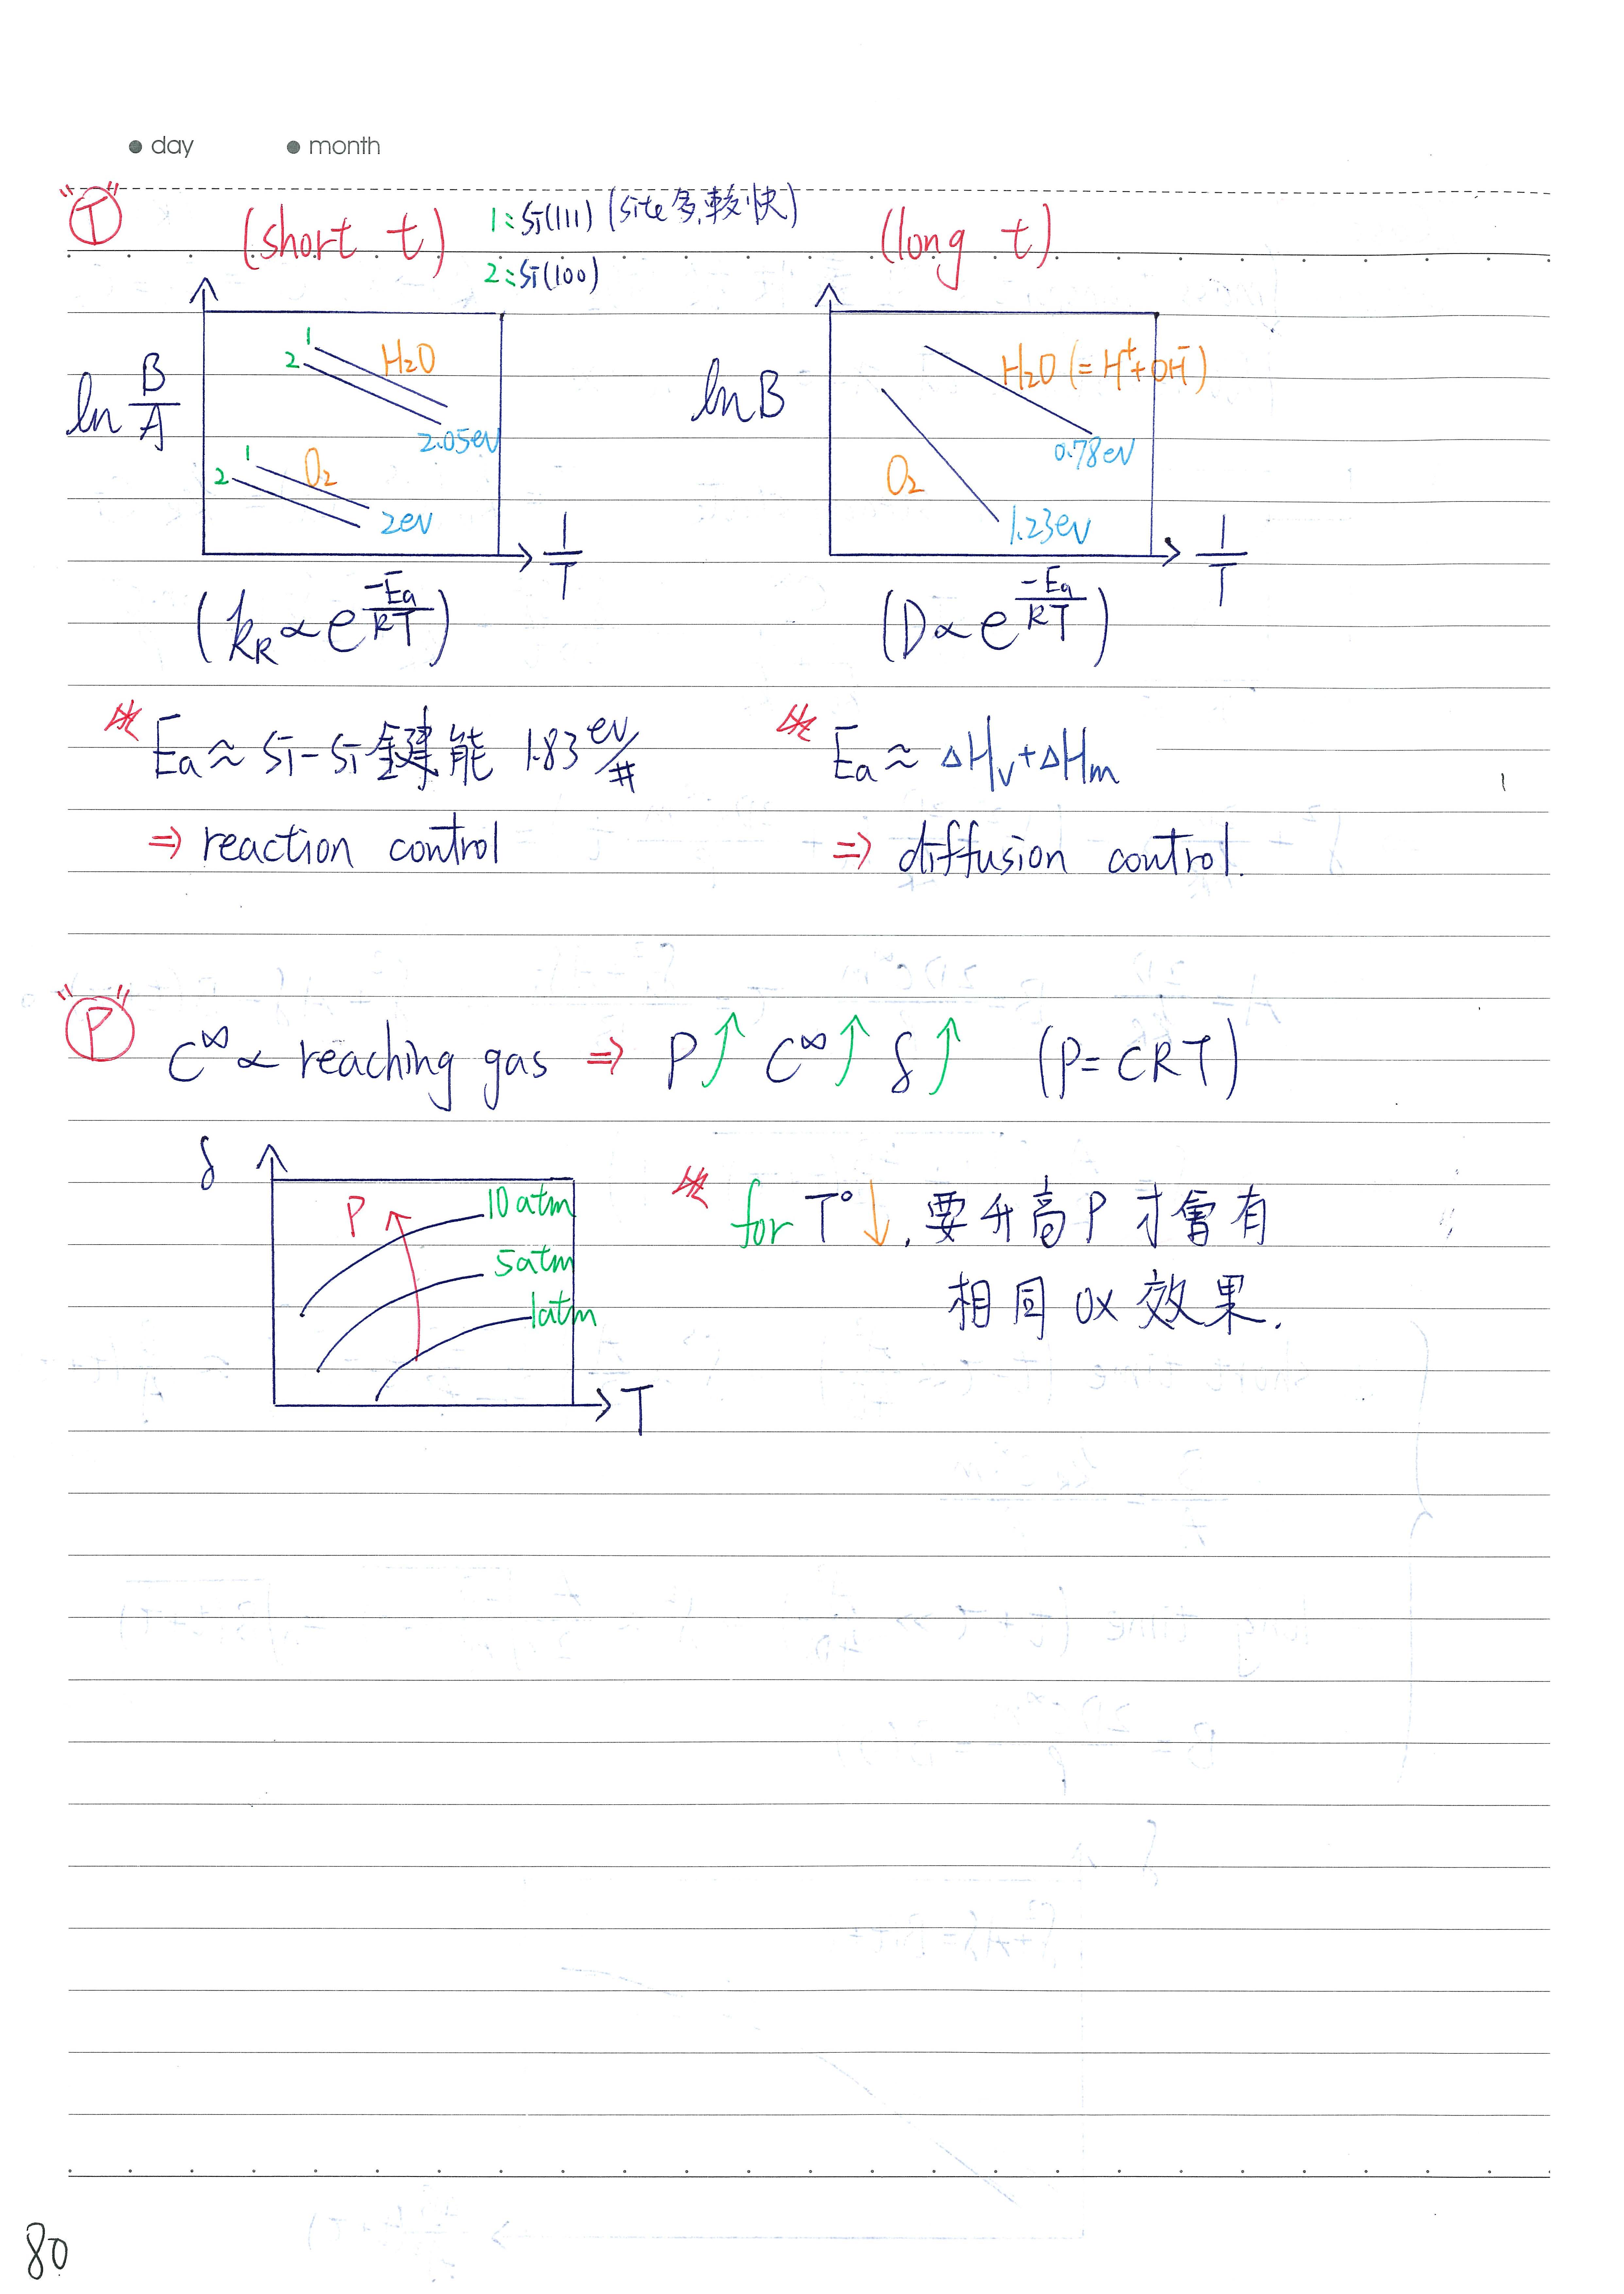 day month
"T" (short t) 1:Si(111) (site多,較快) (long t)
2:Si(100)
ln B/A
1
2
H2O
2.05eV
1
2
O2
2eV
1/T
lnB
H2O (=H⁺+OH⁻)
0.78eV
O2
1.23eV
1/T
(kR∝e^(-Ea/RT)) (D∝e^(-Ea/RT))
Ea≈Si-Si鍵能 1.83 eV/# Ea≈ΔHv+ΔHm
⇒ reaction control ⇒ diffusion control.
"P" C^∞ ∝ reaching gas ⇒ P↑ C^∞↑ δ↑ (P=CRT)
δ
P
10atm
5atm
1atm
T
for T°↓, 要升高P才會有
相同ox效果.
80